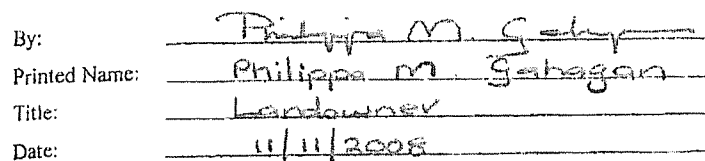 By: Philippa M. Gahagan
Printed Name: Philippa M. Gahagan
Title: Landowner
Date: 11/11/2008